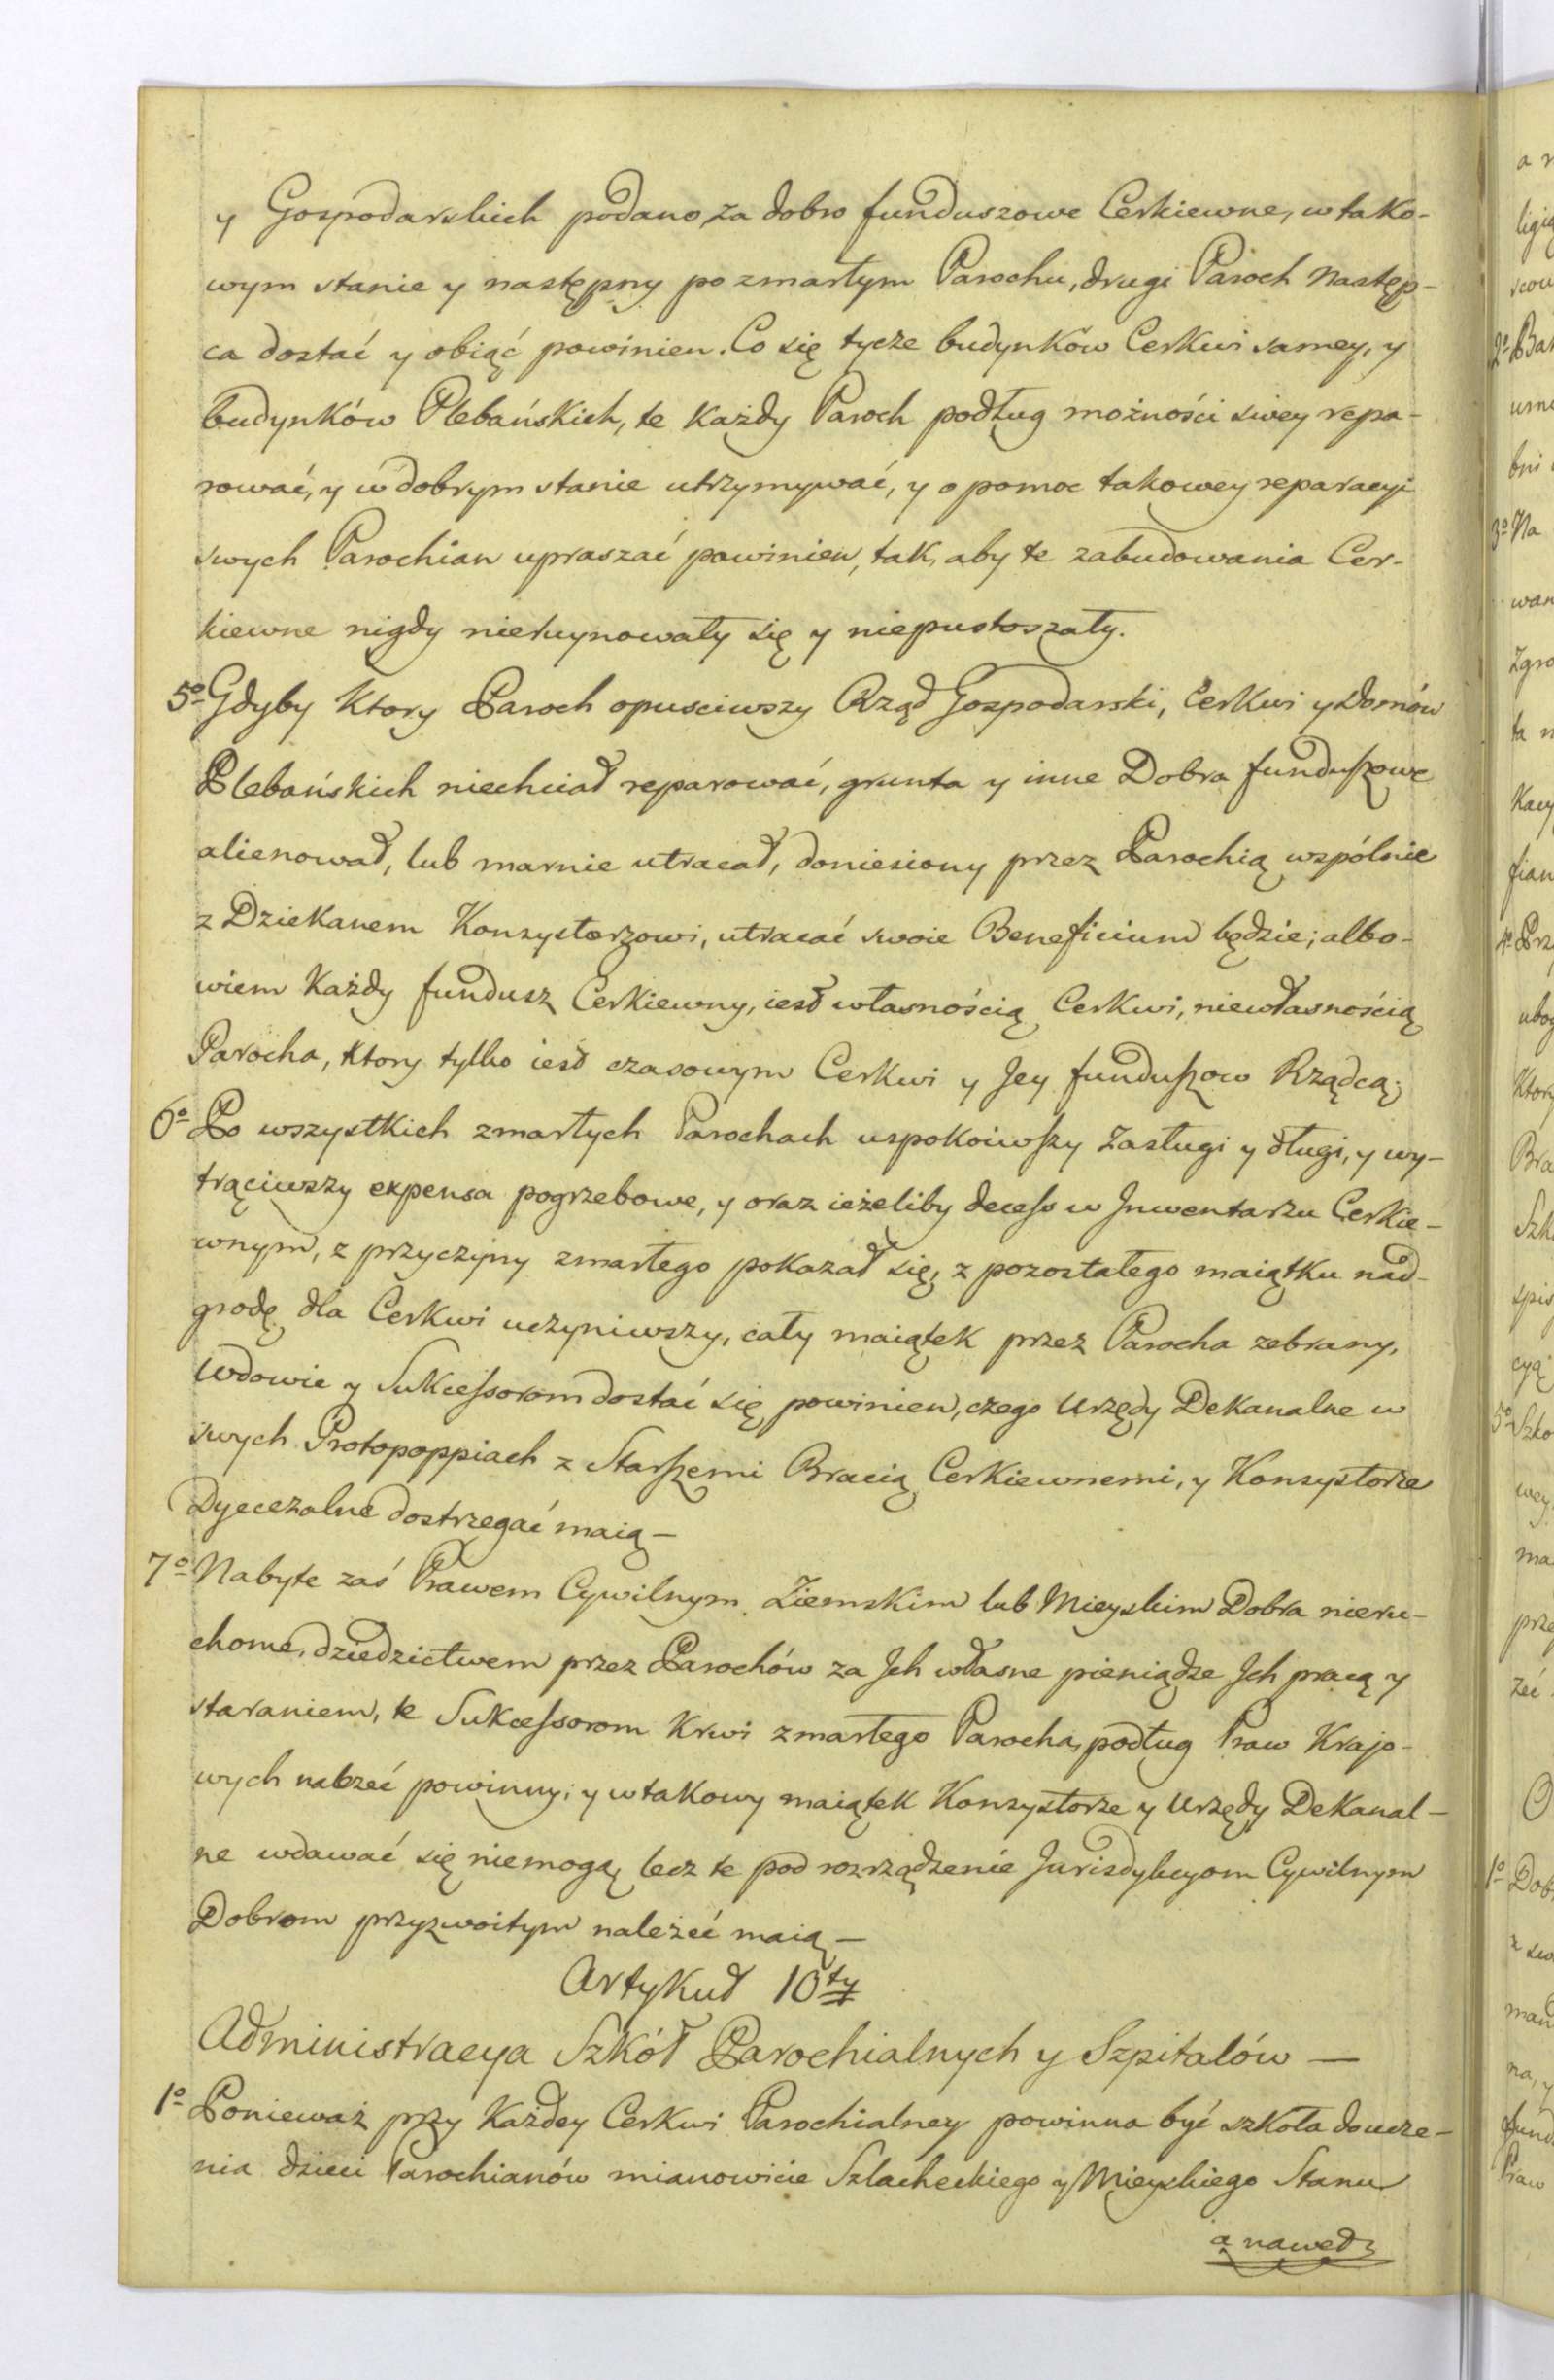 y Gospodarskich podano, za dobro funduszowe Cerkiewne, w tako-
wym stanie y następny po zmarłym Parochu, drugi Paroch Następ-
ca dostać y obiąć powinien. Co się tycze budynkow Cerkwi samey, y
budynków Plebańskich, te Każdy Paroch podług możności swey repa-
rować, y w dobrym stanie utrzymywać, y o pomoc takowey reparacyi
swych Parochian upraszać powinien, tak, aby te zabudowania Cer-
kiewne nigdy nieruynowały się y niepustoszały.
5o Gdyby Ktory Paroch opusciwszy Rząd Gospodarski, Cerkwi y Domów
Plebańskich niechciał reparować, grunta y inne Dobra funduszowe
alienował, lub marnie utracał, doniesiony przez Parochią wspólnie
z Dziekanem Konsystorzowi, utracać swoie Beneficium będzie; albo-
wiem Każdy fundusz Cerkiewny, iest własnością Cerkwi, niewłasnością
Parocha, Ktory tylko iest czasowym Cerkwi y Jey funduszow Rządcą;
6o Po wszystkich zmarłych Parochach uspokoiwszy Zasługi y długi, y wy-
trąciwszy expensa pogrzebowe, y oraz ieżeliby decess w Jnwentarzu Cerkie-
wnym, z przyczyny zmarłego pokazał się, z pozostałego maiątku nad-
grodę dla Cerkwi uczyniwszy, cały maiątek przez Parocha zebrany,
Wdowie y Sukcessorom dostać się powinien, czego Urzędy Dekanalne w
swych Protopoppiach z Starszemi Bracią Cerkiewnemi, y Konsystorze
Dyecezalne dostrzegać maią —
7o Nabyte zaś Prawem Cywilnym Ziemskim lub Mieyskim Dobra nieru-
chome, dziedzictwem przez Parochów za Jch własne pieniądze Jch pracą y
staraniem, te Sukcessorom Krwi zmarłego Parocha, podług Praw Krajo-
wych należeć powinny; y w takowy maiątek Konsystorze y Urzędy Dekanal-
ne wdawać się niemogą, lecz te pod rozrządzenie Jurisdykcyom Cywilnym
Dobrom przyzwoitym należeć maią —
Artykuł 10ty
Administracya Szkół Parochialnych y Szpitalów —
1o Ponieważ przy Każdey Cerkwi Parochialney powinna być szkoła do ucze-
nia dzieci Parochianów mianowicie Szlacheckiego y Mieyskiego Stanu
a nawet